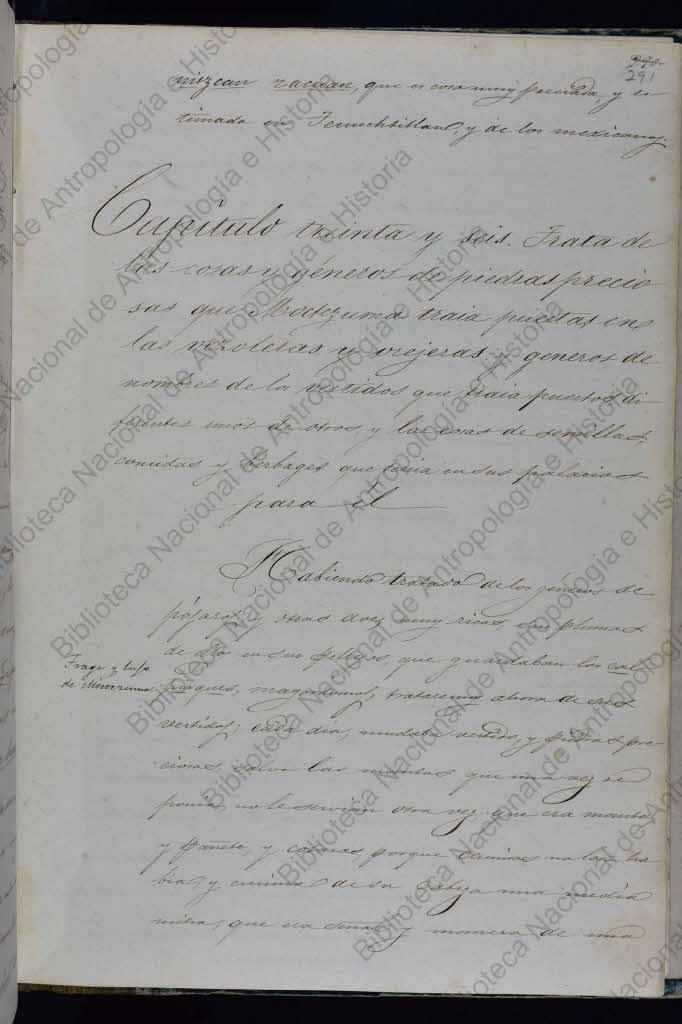 291
nitzcan zacuan, que es cosa muy preciada, y es
timada en Tenuchtitlan, y de los mexicanos.
Capítulo treinta y seis. Trata de
las cosas y géneros de piedras precio
sas que Moctezuma traia puestas en
las vezoleras y orejeras y generos de
nombres de los vestidos que traia puestos di
ferentes unos de otros, y las cosas de semillas,
comidas y Yerbages que tenia en sus palacios
para él
Habiendo tratado de los géneros de
pájaros, y otras aves muy ricas, su plumas
de ello en sus pellejos, que guardaban los cal
pixques, mayordomos, trataremos ahora de sus
Trage y lujo
de Moctezuma
vestidos; cada dia, mudaba vestidos, y piedras pre
ciosas, salvo las mantas, que una vez se
ponia, no le servian otra vez, que era manta,
y pañete, y cotaras, porque camisas no las ha
bia, y encima de su cabeza una media
mitra, que era señal y manera de una
Biblioteca Nacional de Antropología e Historia